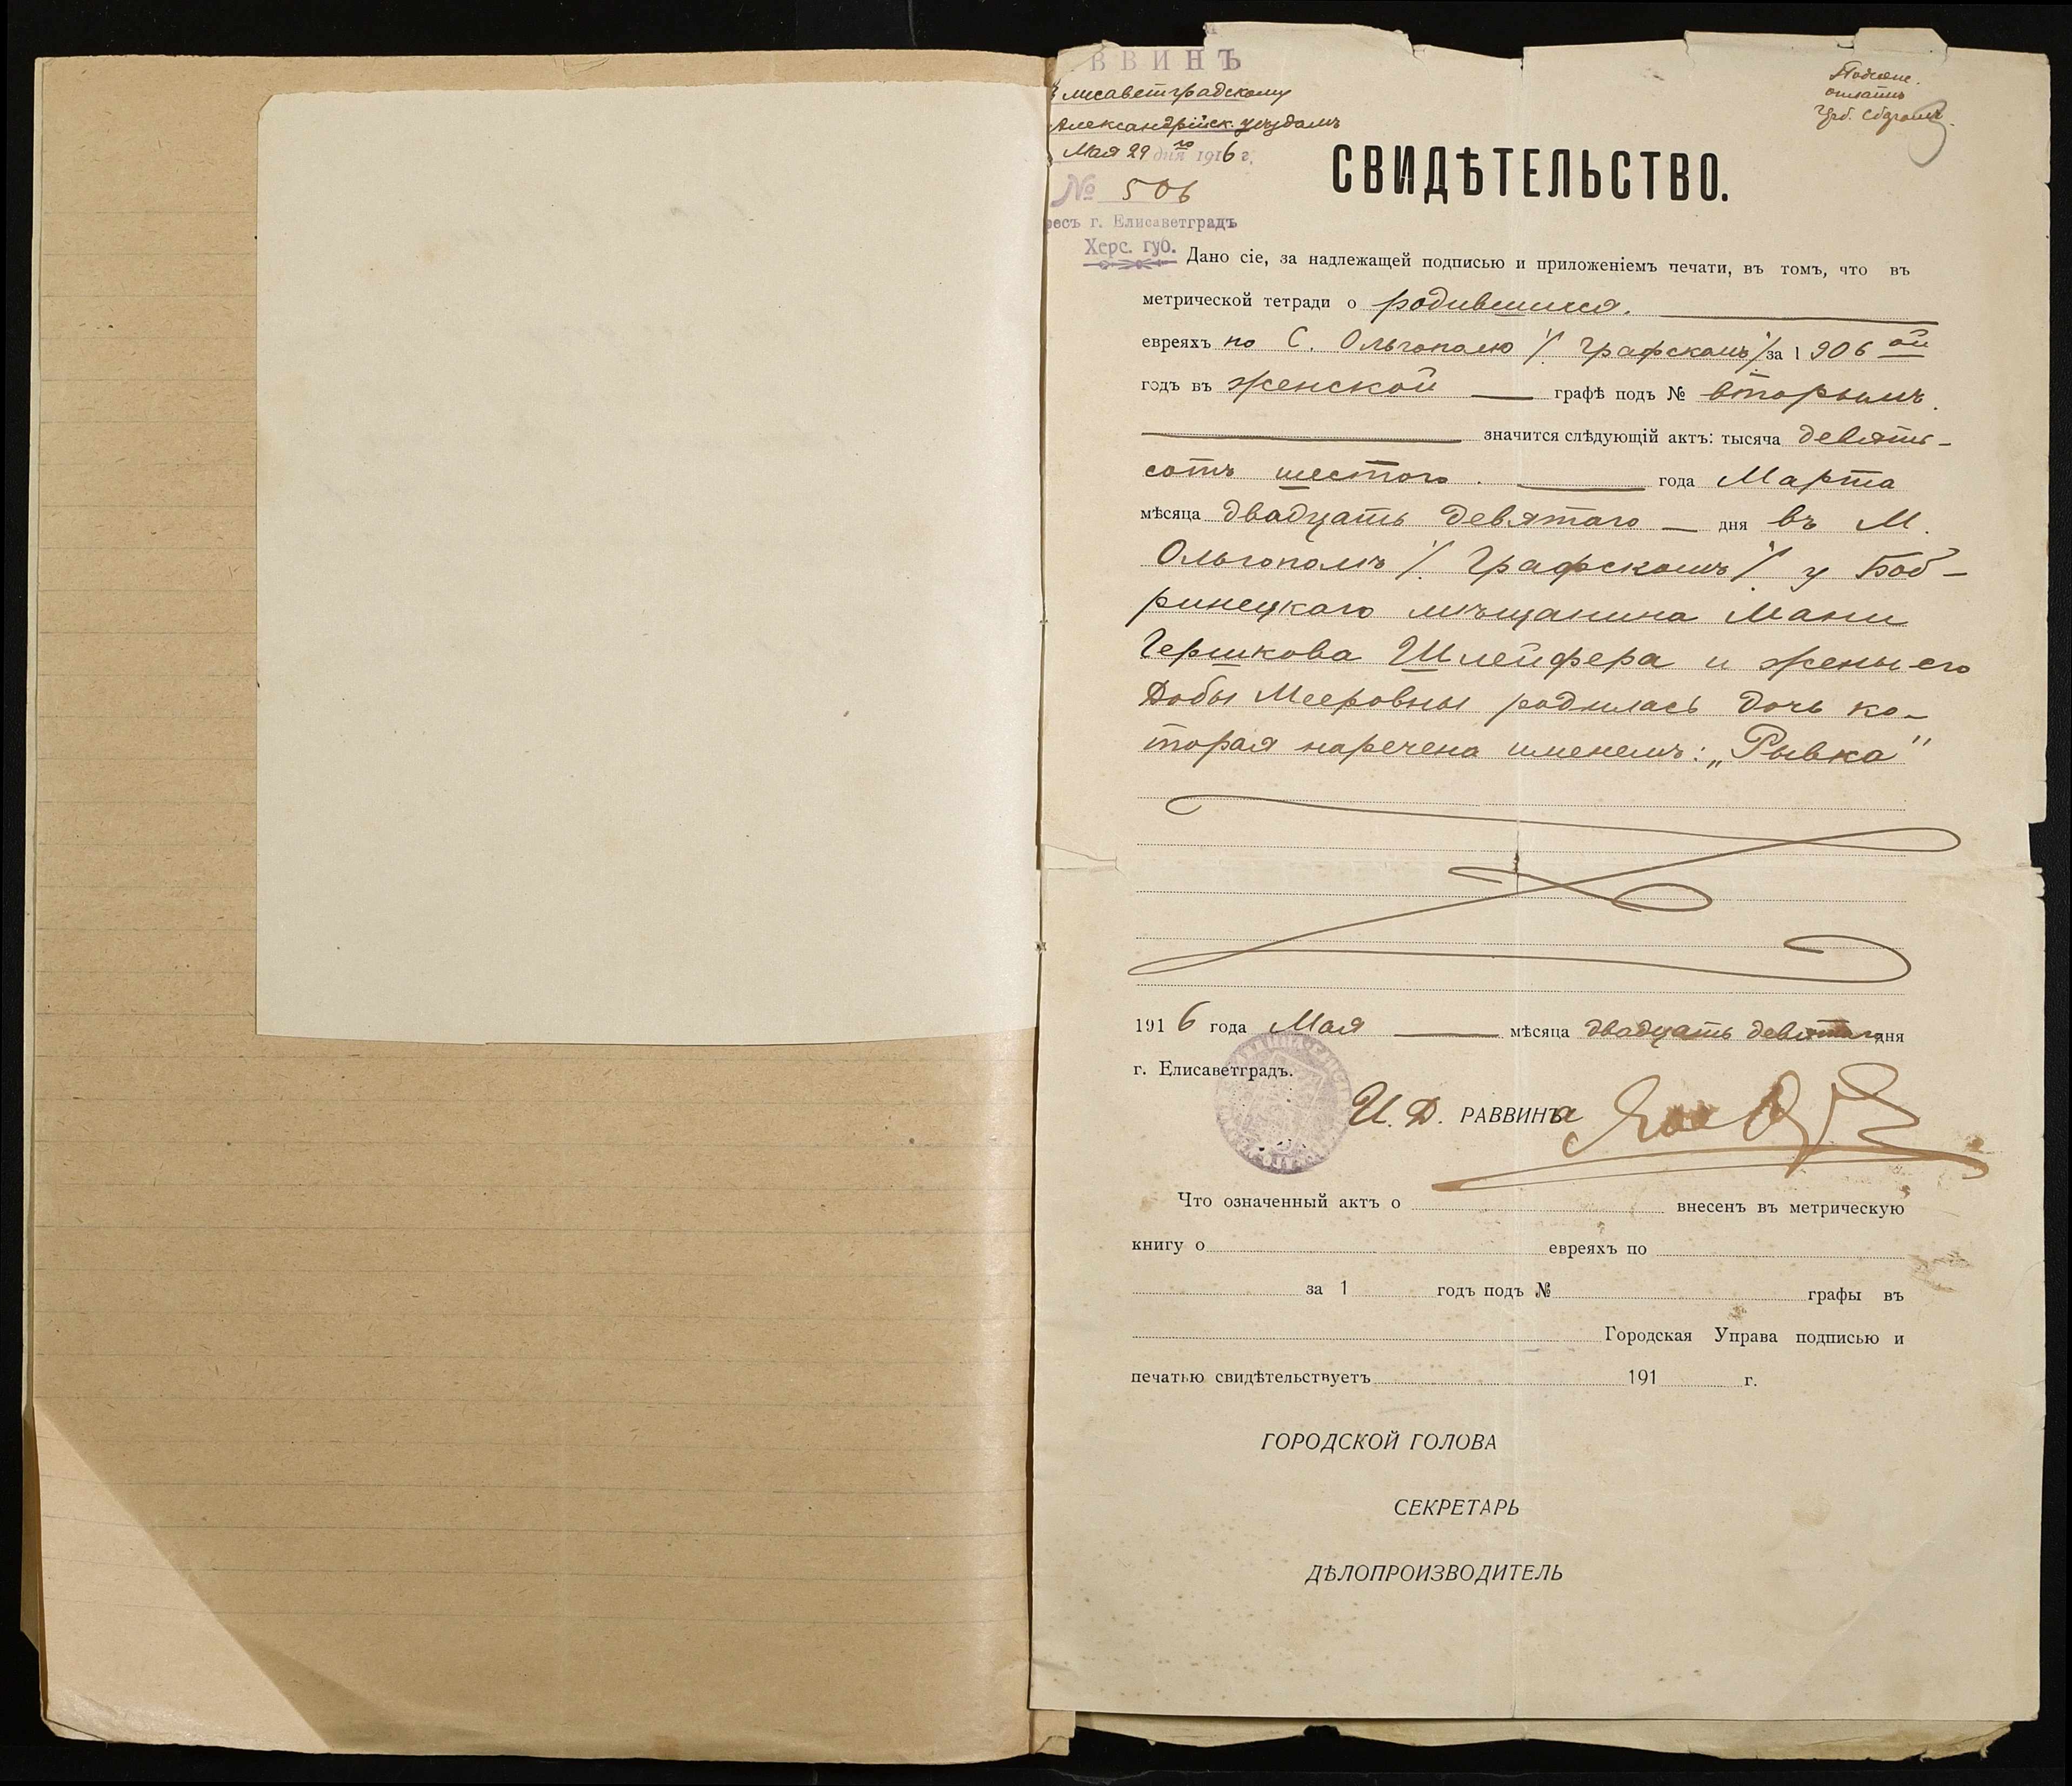 ВВИНЪ
лисаветградскому
Александрійск. уѣздамъ
Мая 29 го дня 1916 г.
№ 506
ресъ г. Елисаветградъ
Херс. губ.
Подлеж.
оплатѣ
Герб. сборомъ.
СВИДѢТЕЛЬСТВО.
Дано сіе, за надлежащей подписью и приложеніемъ печати, въ томъ, что въ
метрической тетради о родившихся.
евреяхъ по С. Ольгополю /. Графскомъ ./ за 1906 ой
годъ въ женской графѣ подъ № вторымъ.
значится слѣдующій актъ: тысяча девять-
сотъ шестого. года Марта
мѣсяца двадцать девятаго дня въ М.
Ольгополѣ /. Графскомъ ./ у Боб-
ринецкаго мѣщанина Мани
Гершкова Шлейфера и жены его
Добы Мееровны родилась дочь ко-
торая наречена именемъ: „Рывка"
1916 года Мая мѣсяца двадцать девятаго дня
г. Елисаветградъ.
И. Д. РАВВИНЪа
Что означенный актъ о внесенъ въ метрическую
книгу о евреяхъ по
за 1 годъ подъ № графы въ
Городская Управа подписью и
печатью свидѣтельствуетъ 191 г.
ГОРОДСКОЙ ГОЛОВА
СЕКРЕТАРЬ
ДѢЛОПРОИЗВОДИТЕЛЬ